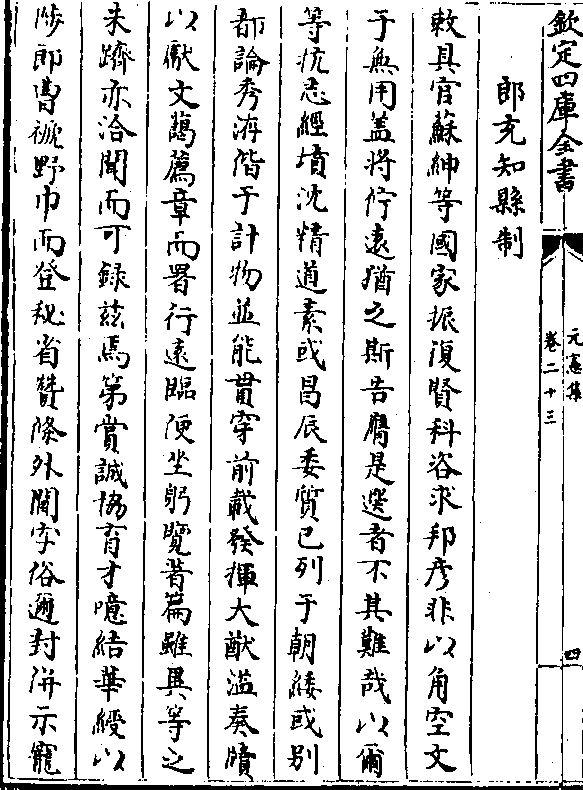 欽定四庫全書
元憲集
卷二十三
四
郎充知縣制
敕具官蘇紳等國家振復賢科咨求邦彦非以角空文
于無用盖將佇遠猶之斯告膺是選者不其難哉以爾
等抗志經墳沈精道素或昌辰委質已列于朝緌或别
都論秀洊偕于計物並能貫穿前載發揮大猷滥奏牘
以獻文藹薦章而署行逺臨便坐躬覽著篇雖異等之
未躋亦洽聞而可録兹焉第賞誠協育才噫結華綬以
陟郎曹褫野巾而登秘省贊條外閫字俗邇封併示寵